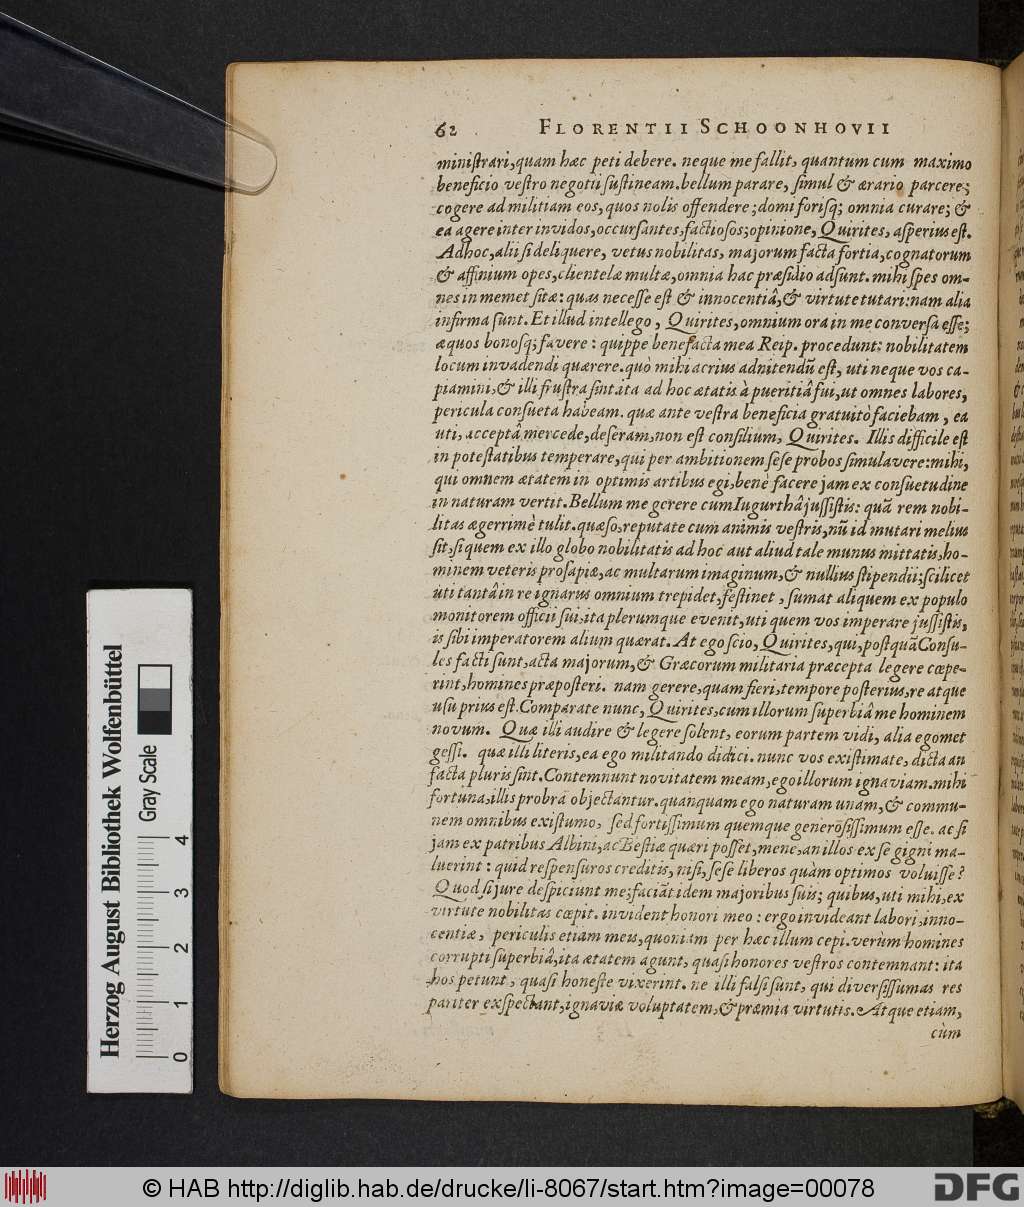 62 FLORENTII SCHOONHOVII
miniſtrari, quam hæc peti debere. neque me fallit, quantum cum maximo
beneficio veſtro negotii ſuſtineam. bellum parare, ſimul & ærario parcere;
cogere ad militiam eos, quos nolis offendere; domi foriſq; omnia curare; &
ea agere inter invidos, occurſantes, factioſos; opinione, Quirites, aſperius eſt.
Ad hoc, alii ſi deliquere, vetus nobilitas, majorum facta fortia, cognatorum
& affinium opes, clientelæ multæ, omnia hac præſidio adſunt. mihi ſpes om-
nes in memet ſitæ: quas neceſſe eſt & innocentiâ, & virtute tutari: nam alia
infirma ſunt. Et illud intellego, Quirites, omnium ora in me converſa eſſe;
æquos bonoſq; favere: quippe benefacta mea Reip. procedunt: nobilitatem
locum invadendi quærere. quò mihi acrius adnitendū eſt, uti neque vos ca-
piamini, & illi fruſtra ſint. ita ad hoc ætatis à pueritiâ fui, ut omnes labores,
pericula conſueta habeam. quæ ante veſtra beneficia gratuitò faciebam, ea
uti, acceptâ mercede, deſeram, non eſt conſilium, Quirites. Illis difficile eſt
in poteſtatibus temperare, qui per ambitionem ſeſe probos ſimulavere: mihi,
qui omnem ætatem in optimis artibus egi, benè facere jam ex conſuetudine
in naturam vertit. Bellum me gerere cum Iugurthâ juſſiſtis: quā rem nobi-
litas ægerrimè tulit. quæſo, reputate cum animis veſtris, nū id mutari melius
ſit, ſi quem ex illo globo nobilitatis ad hoc aut aliud tale munus mittatis, ho-
minem veteris proſapiæ, ac multarum imaginum, & nullius ſtipendii; ſcilicet
uti tantâ in re ignarus omnium trepidet, feſtinet, ſumat aliquem ex populo
monitorem officii ſui, ita plerumque evenit, uti quem vos imperare juſſiſtis,
is ſibi imperatorem alium quærat. At ego ſcio, Quirites, qui, poſtquā Conſu-
les facti ſunt, acta majorum, & Græcorum militaria præcepta legere cœpe-
rint, homines præpoſteri. nam gerere, quam fieri, tempore poſterius, re atque
uſu prius eſt. Comparate nunc, Quirites, cum illorum ſuperbiâ me hominem
novum. Quæ illi audire & legere ſolent, eorum partem vidi, alia egomet
geſſi. quæ illi literis, ea ego militando didici. nunc vos exiſtimate, dicta an
facta pluris ſint. Contemnunt novitatem meam, ego illorum ignaviam. mihi
fortuna, illis probra objectantur. quanquam ego naturam unam, & commu-
nem omnibus exiſtumo, ſed fortiſſimum quemque generoſiſſimum eſſe. ac ſi
jam ex patribus Albini, ac Beſtiæ quæri poſſet, mene, an illos ex ſe gigni ma-
luerint: quid reſpenſuros creditis, niſi, ſeſe liberos quàm optimos voluiſſe?
Quod ſi jure deſpiciunt me; faciāt idem majoribus ſuis; quibus, uti mihi, ex
virtute nobilitas cœpit. invident honori meo: ergo invideant labori, inno-
centiæ, periculis etiam meis, quoniam per hæc illum cepi. verùm homines
corrupti ſuperbiâ, ita ætatem agunt, quaſi honores veſtros contemnant: ita
hos petunt, quaſi honeſte vixerint. ne illi falſi ſunt, qui diverſiſſumas res
pariter exſpectant, ignaviæ voluptatem, & præmia virtutis. Atque etiam,
cùm
Herzog August Bibliothek Wolfenbüttel
Gray Scale
0 1 2 3 4
© HAB http://diglib.hab.de/drucke/li-8067/start.htm?image=00078
DFG